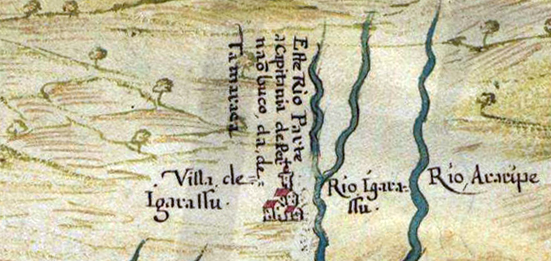 Este Rio Parte
a capitania de Per
nãobuco, da, de,,
Tamaraca
Villa, de=
Igarassu·
Rio Igara=
ssu·
Rio, Araripe